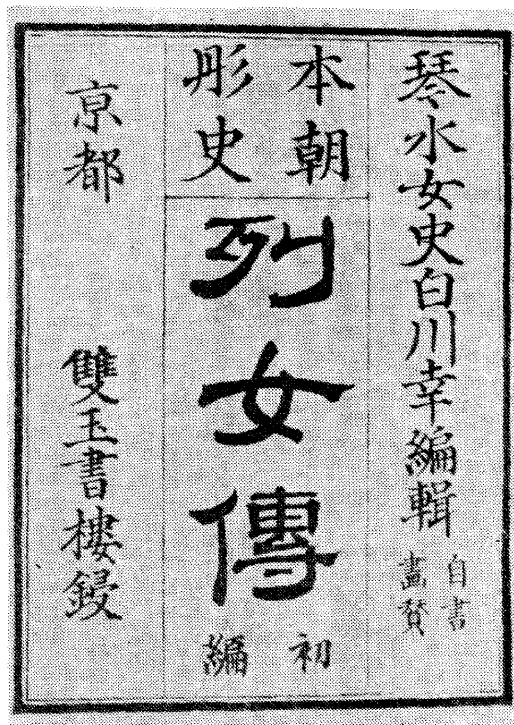 琴水女史白川幸編輯
自書
畵賛
本朝
彤史
列女傳
初
編
京都 雙玉書樓鋟